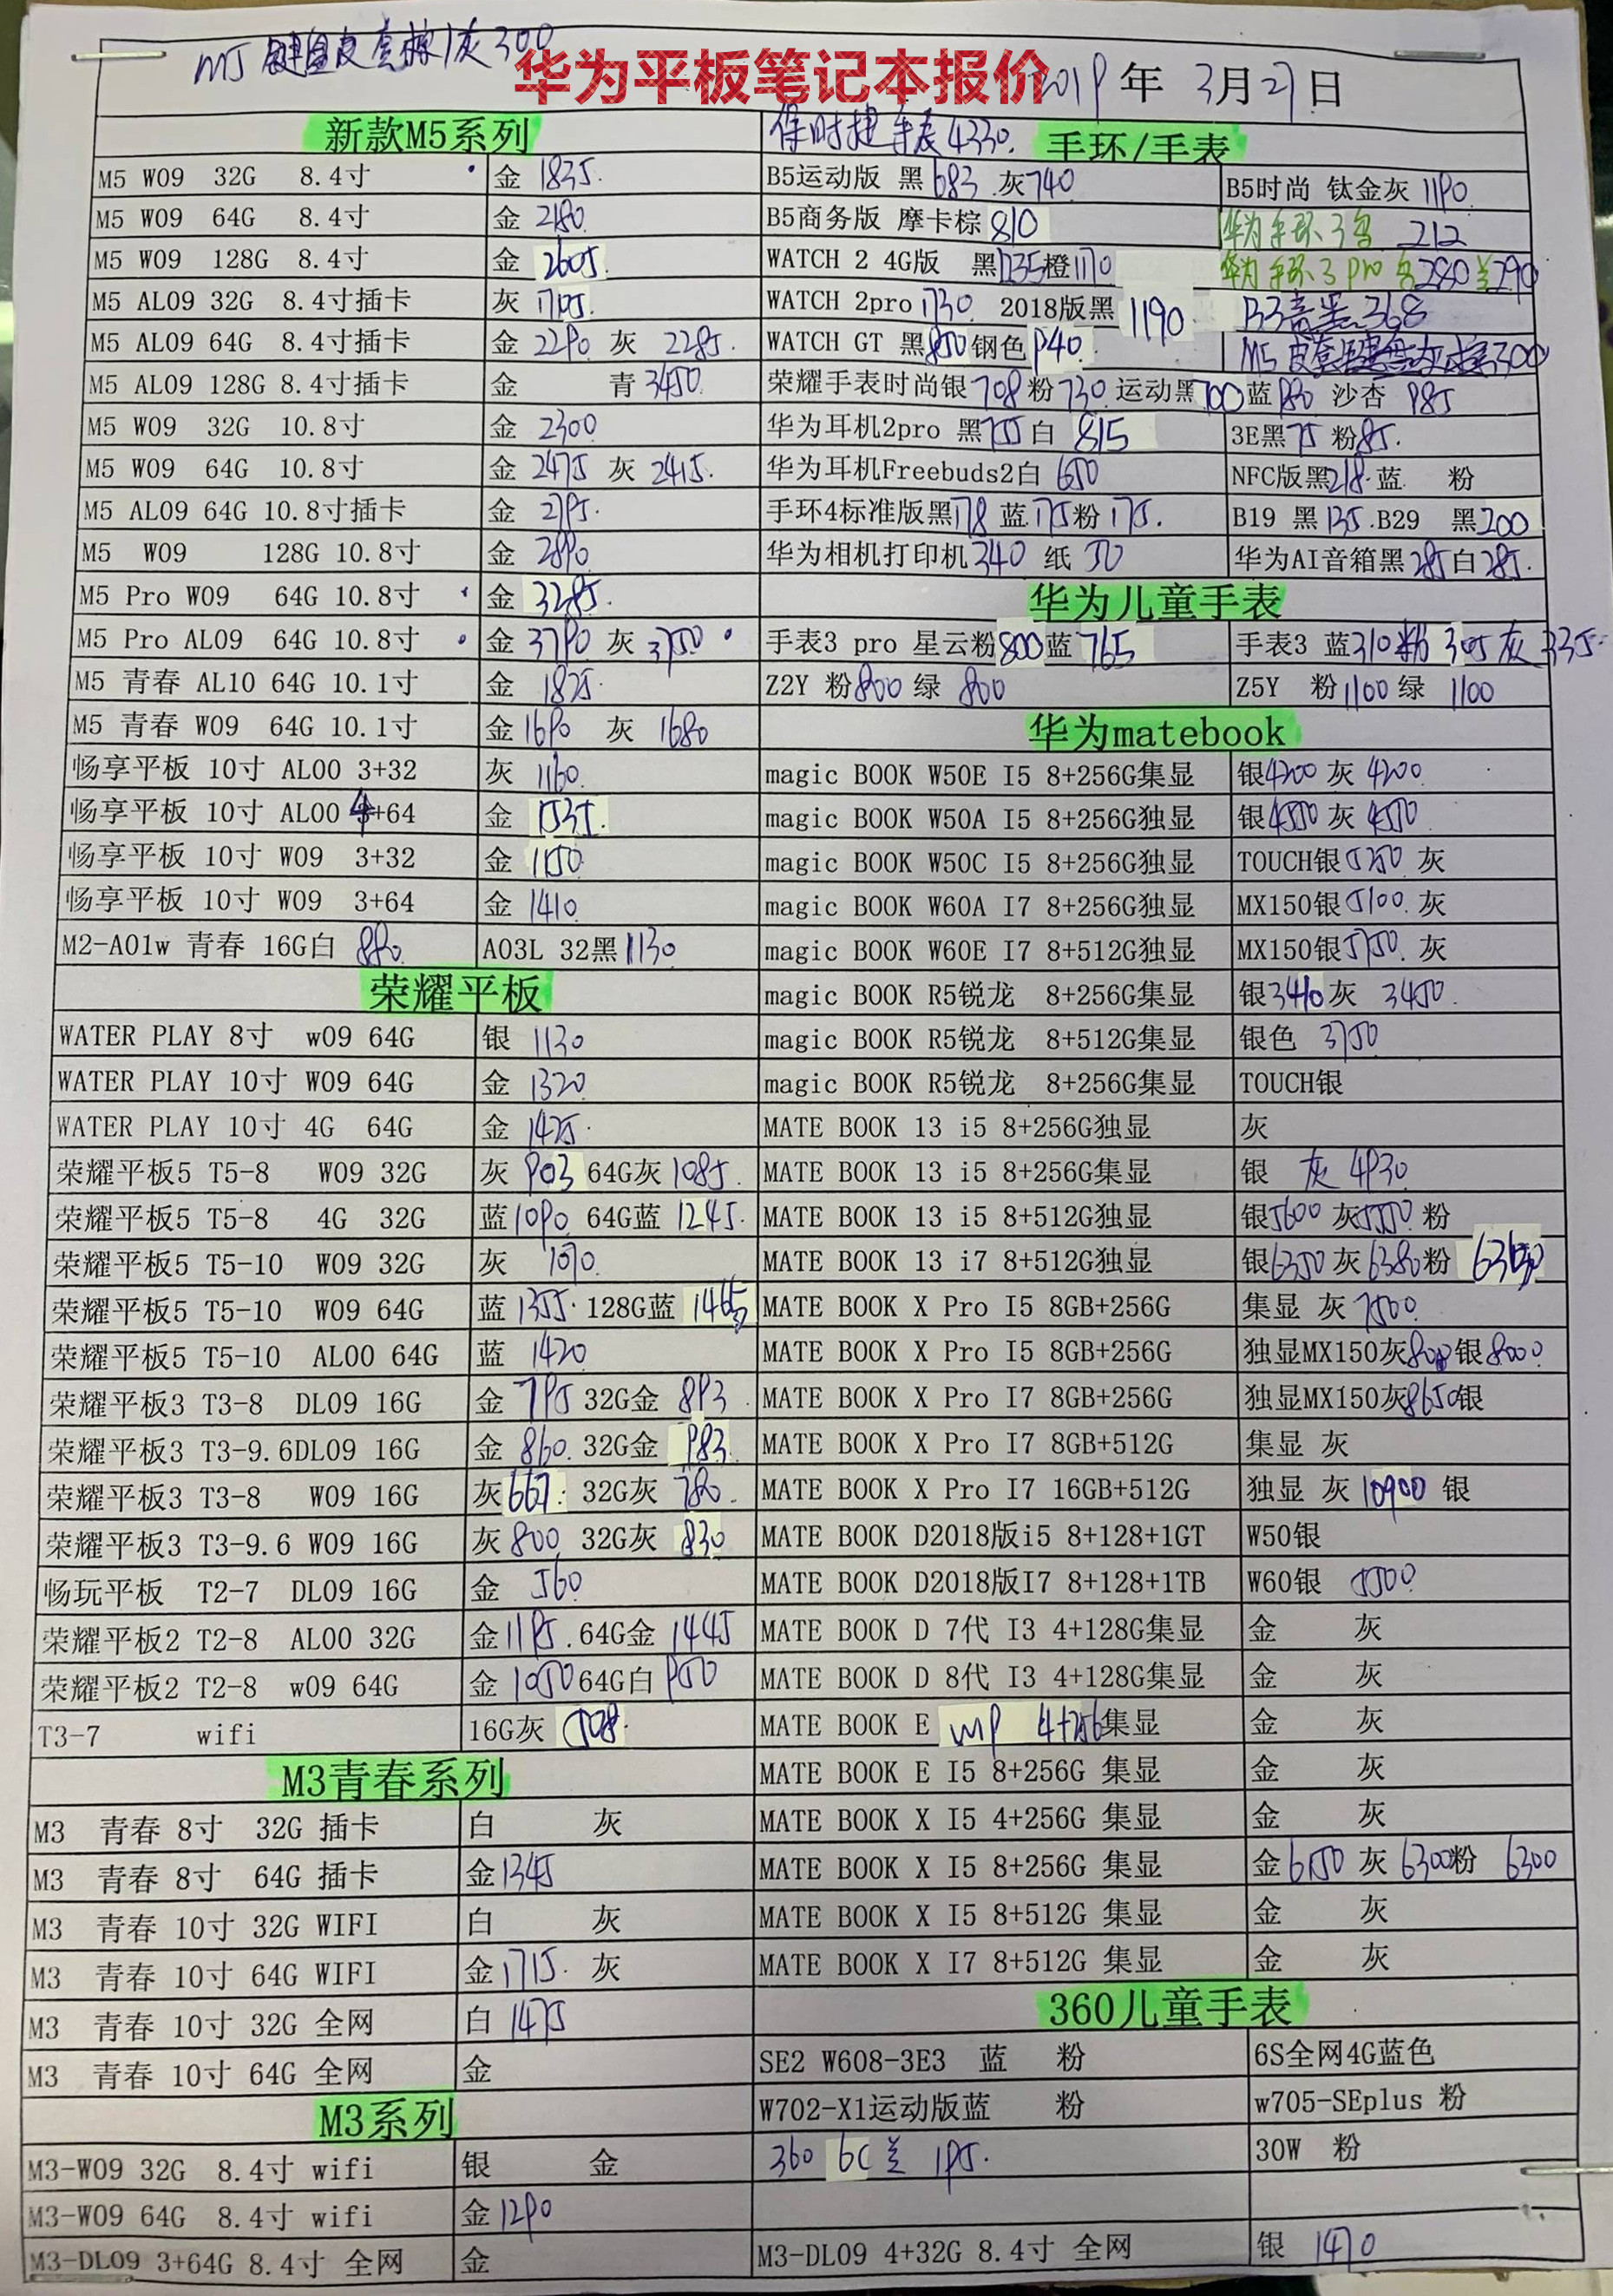 M5 键盘皮套棕/灰300
华为平板笔记本报价
2019年 3月27日
新款M5系列
M5 W09 32G 8.4寸 金 1835.
M5 W09 64G 8.4寸 金 2180.
M5 W09 128G 8.4寸 金 2605.
M5 AL09 32G 8.4寸插卡 灰
M5 AL09 64G 8.4寸插卡 金 2290 灰 2285.
M5 AL09 128G 8.4寸插卡 金 青 3450.
M5 W09 32G 10.8寸 金 2300
M5 W09 64G 10.8寸 金 2475 灰 2415.
M5 AL09 64G 10.8寸插卡 金 2795.
M5 W09 128G 10.8寸 金 2890
M5 Pro W09 64G 10.8寸 金 3285.
M5 Pro AL09 64G 10.8寸 金 3790 灰 3750
M5 青春 AL10 64G 10.1寸 金 1825.
M5 青春 W09 64G 10.1寸 金 1690 灰 1680
畅享平板 10寸 AL00 3+32 灰 1160.
畅享平板 10寸 AL00 4+64 金 1535.
畅享平板 10寸 W09 3+32 金 1150
畅享平板 10寸 W09 3+64 金 1410
M2-A01w 青春 16G白 880. A03L 32黑 1130
荣耀平板
WATER PLAY 8寸 w09 64G 银 1130
WATER PLAY 10寸 W09 64G 金 1320
WATER PLAY 10寸 4G 64G 金 1425.
荣耀平板5 T5-8 W09 32G 灰 903 64G灰 1085.
荣耀平板5 T5-8 4G 32G 蓝 1090 64G蓝 1245.
荣耀平板5 T5-10 W09 32G 灰 1070.
荣耀平板5 T5-10 W09 64G 蓝 1355. 128G蓝
荣耀平板5 T5-10 AL00 64G 蓝 1420
荣耀平板3 T3-8 DL09 16G 金 795 32G金 893
荣耀平板3 T3-9.6DL09 16G 金 860. 32G金 983.
荣耀平板3 T3-8 W09 16G 灰 667. 32G灰 780.
荣耀平板3 T3-9.6 W09 16G 灰 800 32G灰 830
畅玩平板 T2-7 DL09 16G 金 560
荣耀平板2 T2-8 AL00 32G 金 1195. 64G金 1445
荣耀平板2 T2-8 w09 64G 金 1050 64G白 950
T3-7 wifi 16G灰 508.
M3青春系列
M3 青春 8寸 32G 插卡 白 灰
M3 青春 8寸 64G 插卡 金 1345
M3 青春 10寸 32G WIFI 白 灰
M3 青春 10寸 64G WIFI 金 1715. 灰
M3 青春 10寸 32G 全网 白 1475
M3 青春 10寸 64G 全网 金
M3系列
M3-W09 32G 8.4寸 wifi 银 金
M3-W09 64G 8.4寸 wifi 金 1290
M3-DL09 3+64G 8.4寸 全网 金
保时捷手表4330. 手环/手表
B5运动版 黑 683 .灰740 B5时尚 钛金灰 1190
B5商务版 摩卡棕 810 华为手环3 212
WATCH 2 4G版 黑1235橙1170 华为手环3 pro 280 兰290
WATCH 2pro 1730. 2018版黑 1190 B3 368
WATCH GT 黑850 钢色 940. M5 皮套 300
荣耀手表时尚银 708 粉 730 运动黑700 蓝 880 沙杏 985
华为耳机2pro 黑755白 815 3E黑75 粉85.
华为耳机Freebuds2白 650 NFC版黑218.蓝 粉
手环4标准版黑178 蓝175粉 175. B19 黑 135.B29 黑200
华为相机打印机340 纸 50 华为AI音箱黑 285白 285.
华为儿童手表
手表3 pro 星云粉800蓝 765 手表3 蓝310 粉 305 灰 335.
Z2Y 粉800 绿 800 Z5Y 粉1100 绿 1100
华为matebook
magic BOOK W50E I5 8+256G集显 银4200 灰 4200
magic BOOK W50A I5 8+256G独显 银4550 灰 4550
magic BOOK W50C I5 8+256G独显 TOUCH银5250 灰
magic BOOK W60A I7 8+256G独显 MX150银5100. 灰
magic BOOK W60E I7 8+512G独显 MX150银5750. 灰
magic BOOK R5锐龙 8+256G集显 银3410 灰 3450.
magic BOOK R5锐龙 8+512G集显 银色 3750
magic BOOK R5锐龙 8+256G集显 TOUCH银
MATE BOOK 13 i5 8+256G独显 灰
MATE BOOK 13 i5 8+256G集显 银 灰 4930
MATE BOOK 13 i5 8+512G独显 银5600 灰5550 粉
MATE BOOK 13 i7 8+512G独显 银6350 灰 6380粉
MATE BOOK X Pro I5 8GB+256G 集显 灰 7500.
MATE BOOK X Pro I5 8GB+256G 独显MX150灰 银8000
MATE BOOK X Pro I7 8GB+256G 独显MX150灰8650银
MATE BOOK X Pro I7 8GB+512G 集显 灰
MATE BOOK X Pro I7 16GB+512G 独显 灰 10900 银
MATE BOOK D2018版i5 8+128+1GT W50银
MATE BOOK D2018版I7 8+128+1TB W60银 5500
MATE BOOK D 7代 I3 4+128G集显 金 灰
MATE BOOK D 8代 I3 4+128G集显 金 灰
MATE BOOK E 4+256集显 金 灰
MATE BOOK E I5 8+256G 集显 金 灰
MATE BOOK X I5 4+256G 集显 金 灰
MATE BOOK X I5 8+256G 集显 金 6150 灰 6300粉 6300
MATE BOOK X I5 8+512G 集显 金 灰
MATE BOOK X I7 8+512G 集显 金 灰
360儿童手表
SE2 W608-3E3 蓝 粉 6S全网4G蓝色
W702-X1运动版蓝 粉 w705-SEplus 粉
360 6C 兰 195. 30W 粉
M3-DL09 4+32G 8.4寸 全网 银 1470